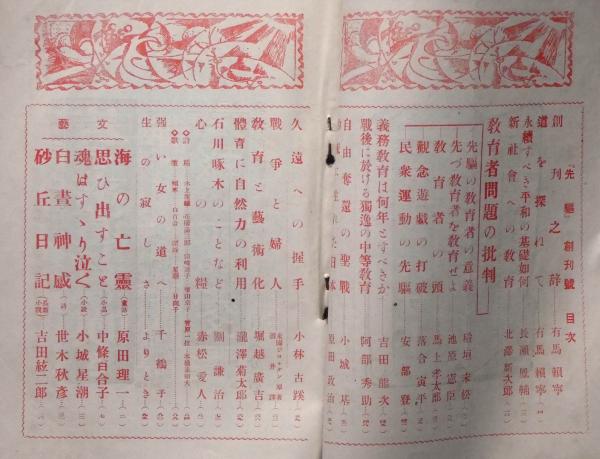 『先驅』創刊號 目次
創刊之辞 有馬頼寧
道を探ねて 有馬頼寧
永續すべき平和の基礎如何 長瀬鳳輔
新社會への教育 北澤新次郎
教育者問題の批判
先驅の教育者の意義 稲垣末松
先づ教育者を教育せよ 池原憲臣
教育者の頭 馬上孝太郎
觀念遊戯の打破 落合寅平
民衆運動の先驅 安部磯
義務教育は何年とすべきか 吉田龍次
戰後に於ける獨逸の中等教育 阿部秀助
自由奪還の聖戰 小城基
原田政治
久遠への握手 小林古蹊
戰爭と婦人
教育と藝術化 堀越廣吉
體育に自然力の利用 瀧澤菊太郎
石川啄木のことなど 關謙治
心の糧 赤松愛人
強い女の道へ 千鶴子
生の寂しさ よりとき
文藝
海の亡靈（童話） 原田理一
思ひ出すこと（小品） 中條百合子
魂はすゝり泣く（小說） 小城星潮
白晝神慼（詩） 世木秋彦
砂丘日記（長篇小說） 吉田絃二郎